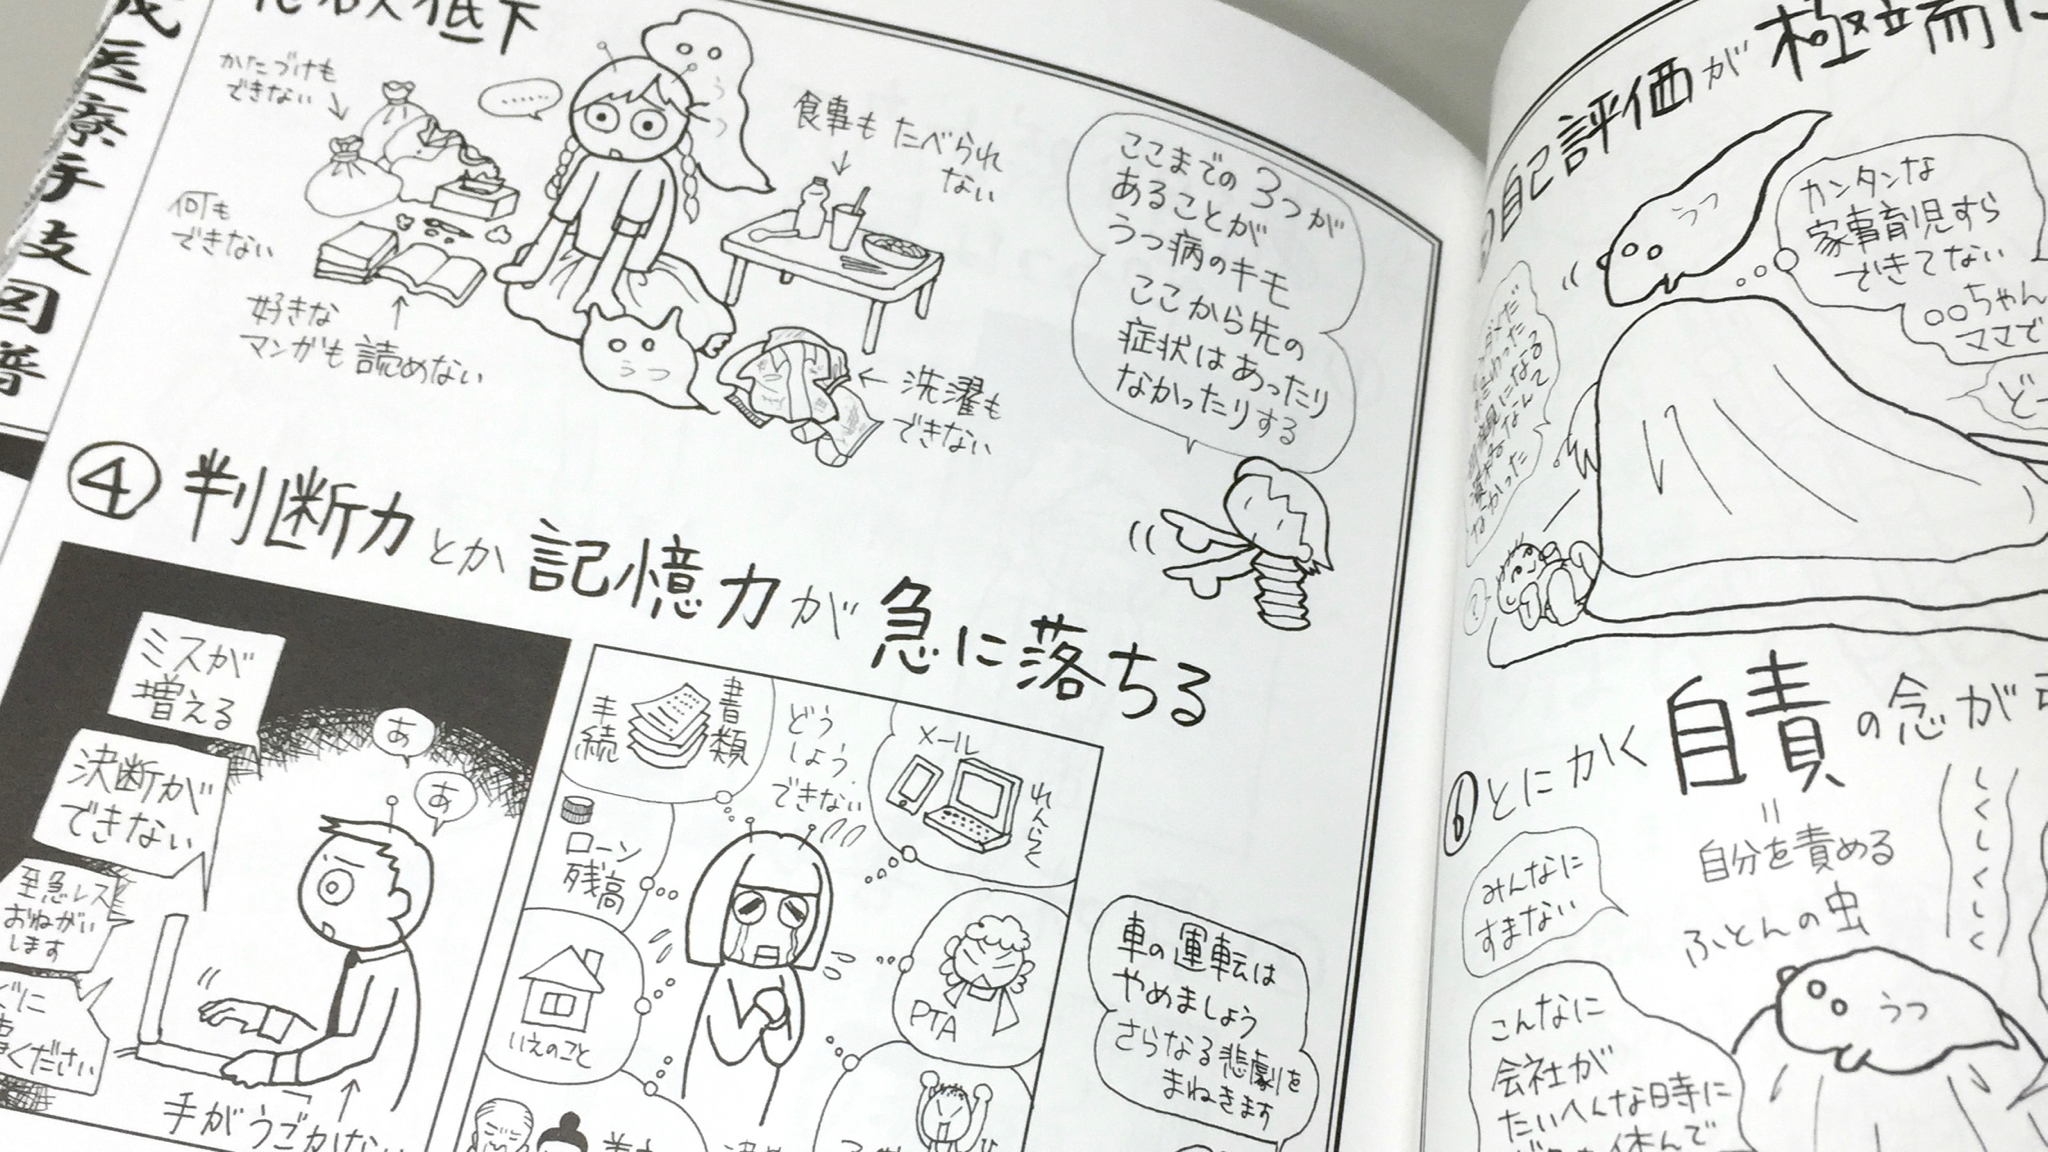 医療手技図譜
低下
かたづけも
できない
……
うつ
何も
できない
好きな
マンガも読めない
食事もたべられ
ない
うつ
洗濯も
できない
ここまでの3つが
あることが
うつ病のキモ
ここから先の
症状はあったり
なかったりする
④判断力とか記憶力が急に落ちる
ミスが
増える
決断が
できない
至急レス
おねがい
します
ください
あ
あ
手がうごかない
手続
書類
どう
しよう
できない
メール
れんらく
ローン
残高
いえのこと
PTA
車の運転は
やめましょう
さらなる悲劇を
まねきます
自己評価が極端に
うつ
カンタンな
家事育児すら
できてない
○○ちゃん
ママで
ど
⑥とにかく自責の念が
=
自分を責める
みんなに
すまない
ふとんの虫
うつ
しくしくしく
こんなに
会社が
たいへんな時に
休んで